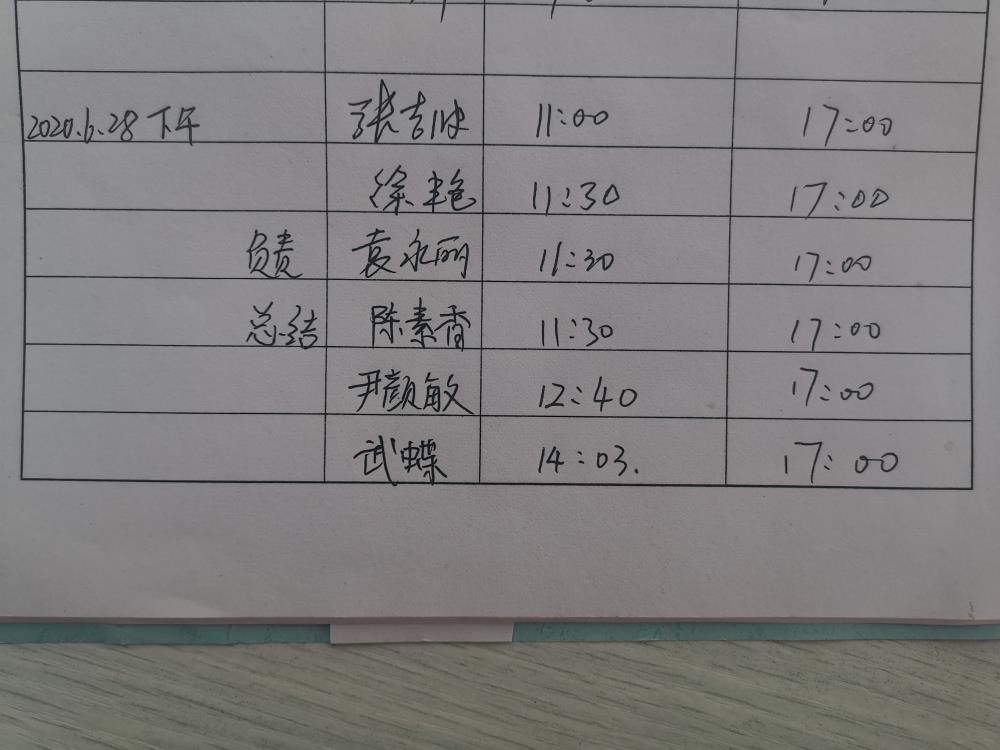 2020.6.28 下午 张吉 11:00 17:00
徐艳 11:30 17:00
负责 袁永丽 11:30 17:00
总结 陈素香 11:30 17:00
尹颜敏 12:40 17:00
武蝶 14:03. 17:00